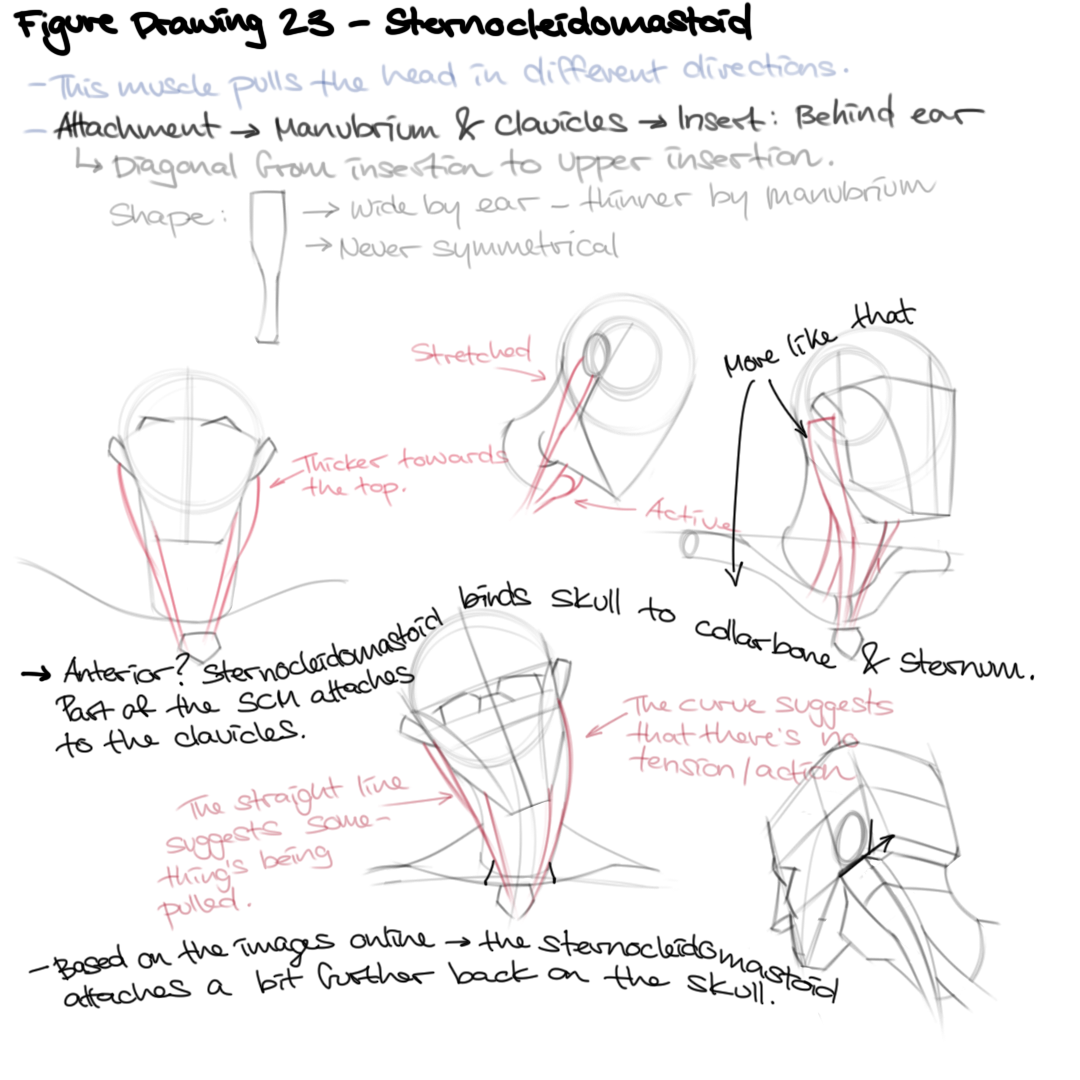 Figure Drawing 23 - Sternocleidomastoid
- This muscle pulls the head in different directions.
- Attachment → Manubrium & Clavicles → Insert: Behind ear
↳ Diagonal from insertion to upper insertion.
Shape: → Wide by ear - thinner by manubrium
→ Never symmetrical
Stretched
More like that
Thicker towards
the top.
Active
→ Anterior? Sternocleidomastoid binds skull to collarbone & sternum.
Part of the SCM attaches
to the clavicles.
The curve suggests
that there's no
tension/action
The straight line
suggests some-
thing's being
pulled.
- Based on the images online → the sternocleidomastoid
attaches a bit further back on the skull.